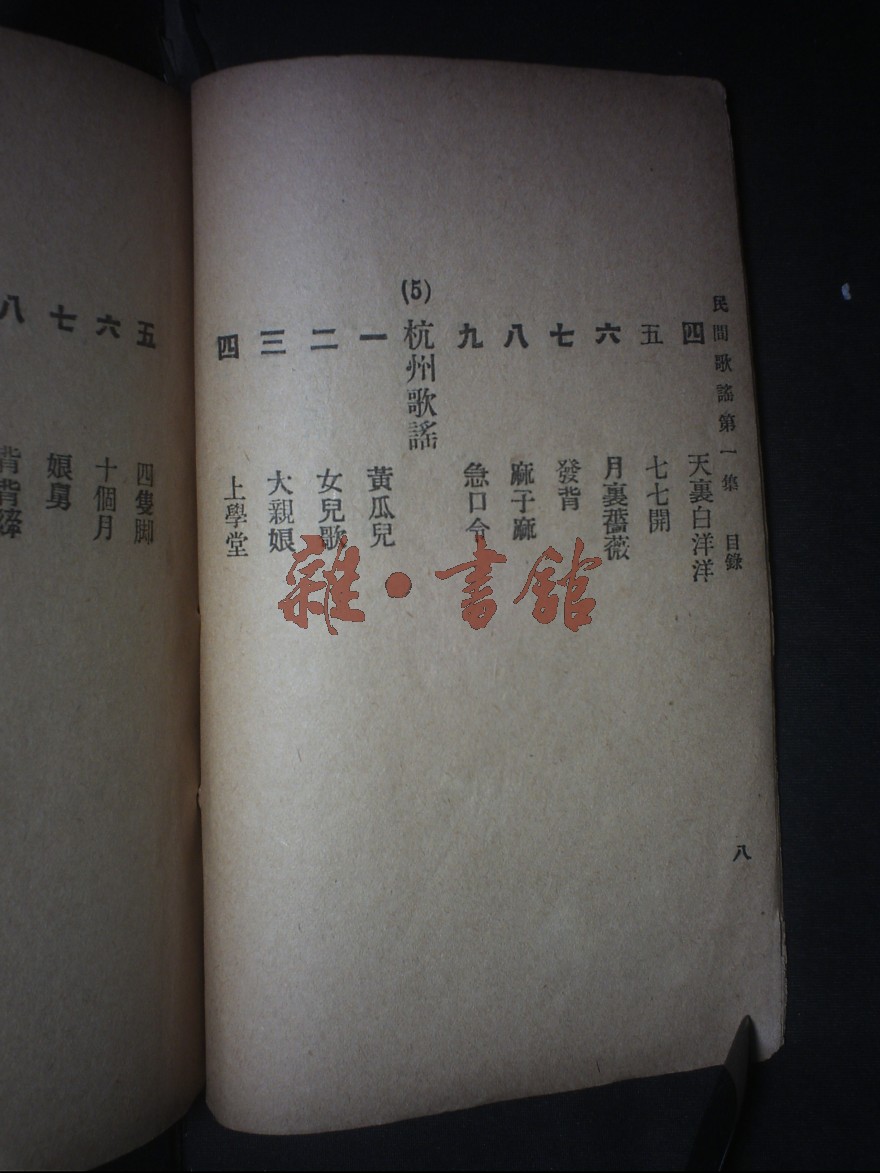 民間歌謠第一集 目錄
四 天裏白洋洋
五 七七開
六 月裏薔薇
七 發背
八 麻子麻
九 急口令
(5) 杭州歌謠
一 黃瓜兒
二 女兒歌
三 大親娘
四 上學堂
八
五 四隻脚
六 十個月
七 娘舅
八 背背
雜·書館